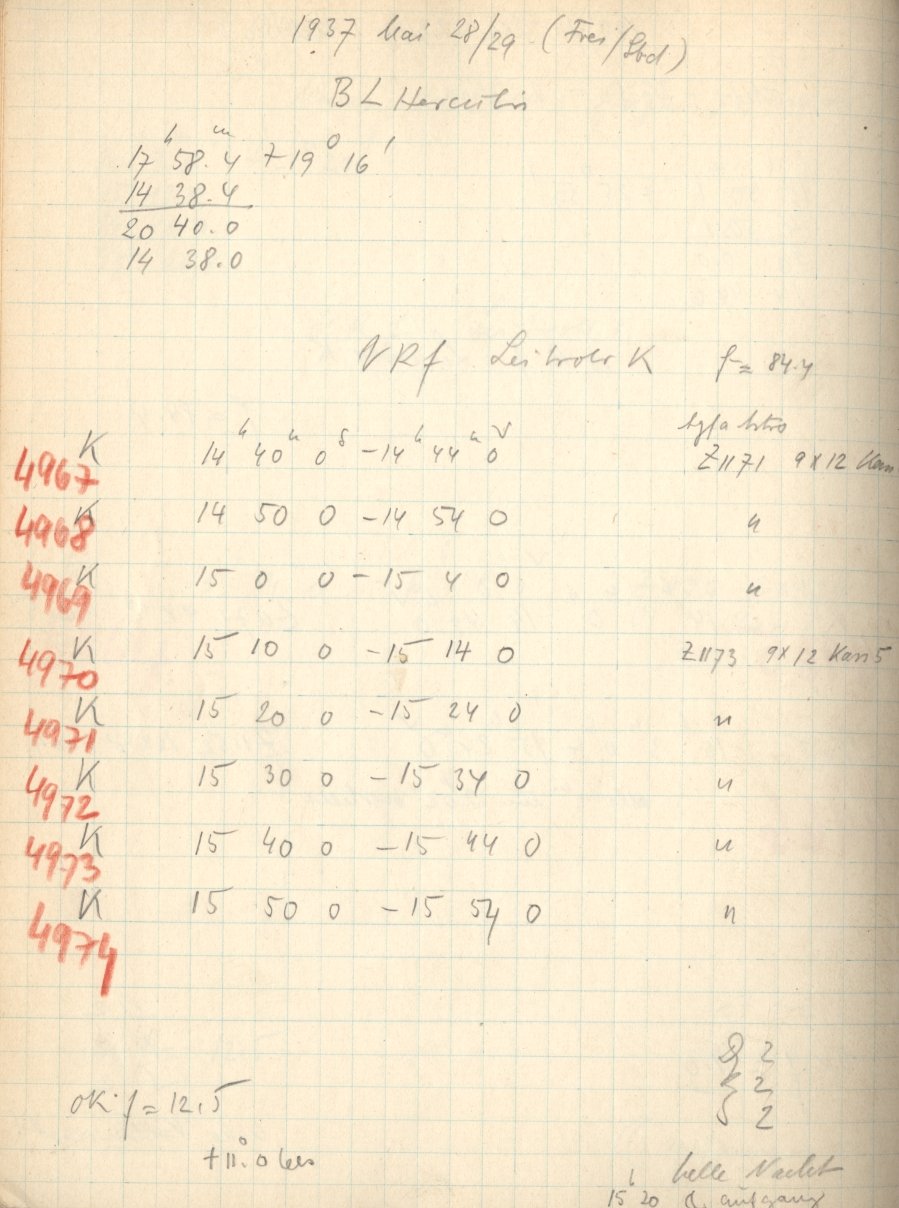 1937 Mai 28/29 (Frei/Sbd)
BL Herculis
17h 58.4m +19° 16'
14 38.4
20 40.0
14 38.0
Leitrohr K f= 84.4
Agfa Astro
K 14h 40m 0s - 14h 44m 0s Z1171 9x12 Kass
4967
K 14 50 0 - 14 54 0 "
4968
K 15 0 0 - 15 4 0 "
4969
K 15 10 0 - 15 14 0 Z1173 9x12 Kass 5
4970
K 15 20 0 - 15 24 0 "
4971
K 15 30 0 - 15 34 0 "
4972
K 15 40 0 - 15 44 0 "
4973
K 15 50 0 - 15 54 0 "
4974
2
2
OK f = 12.5
2
+11.°0 Cels
helle Nacht
15h 20 aufgang